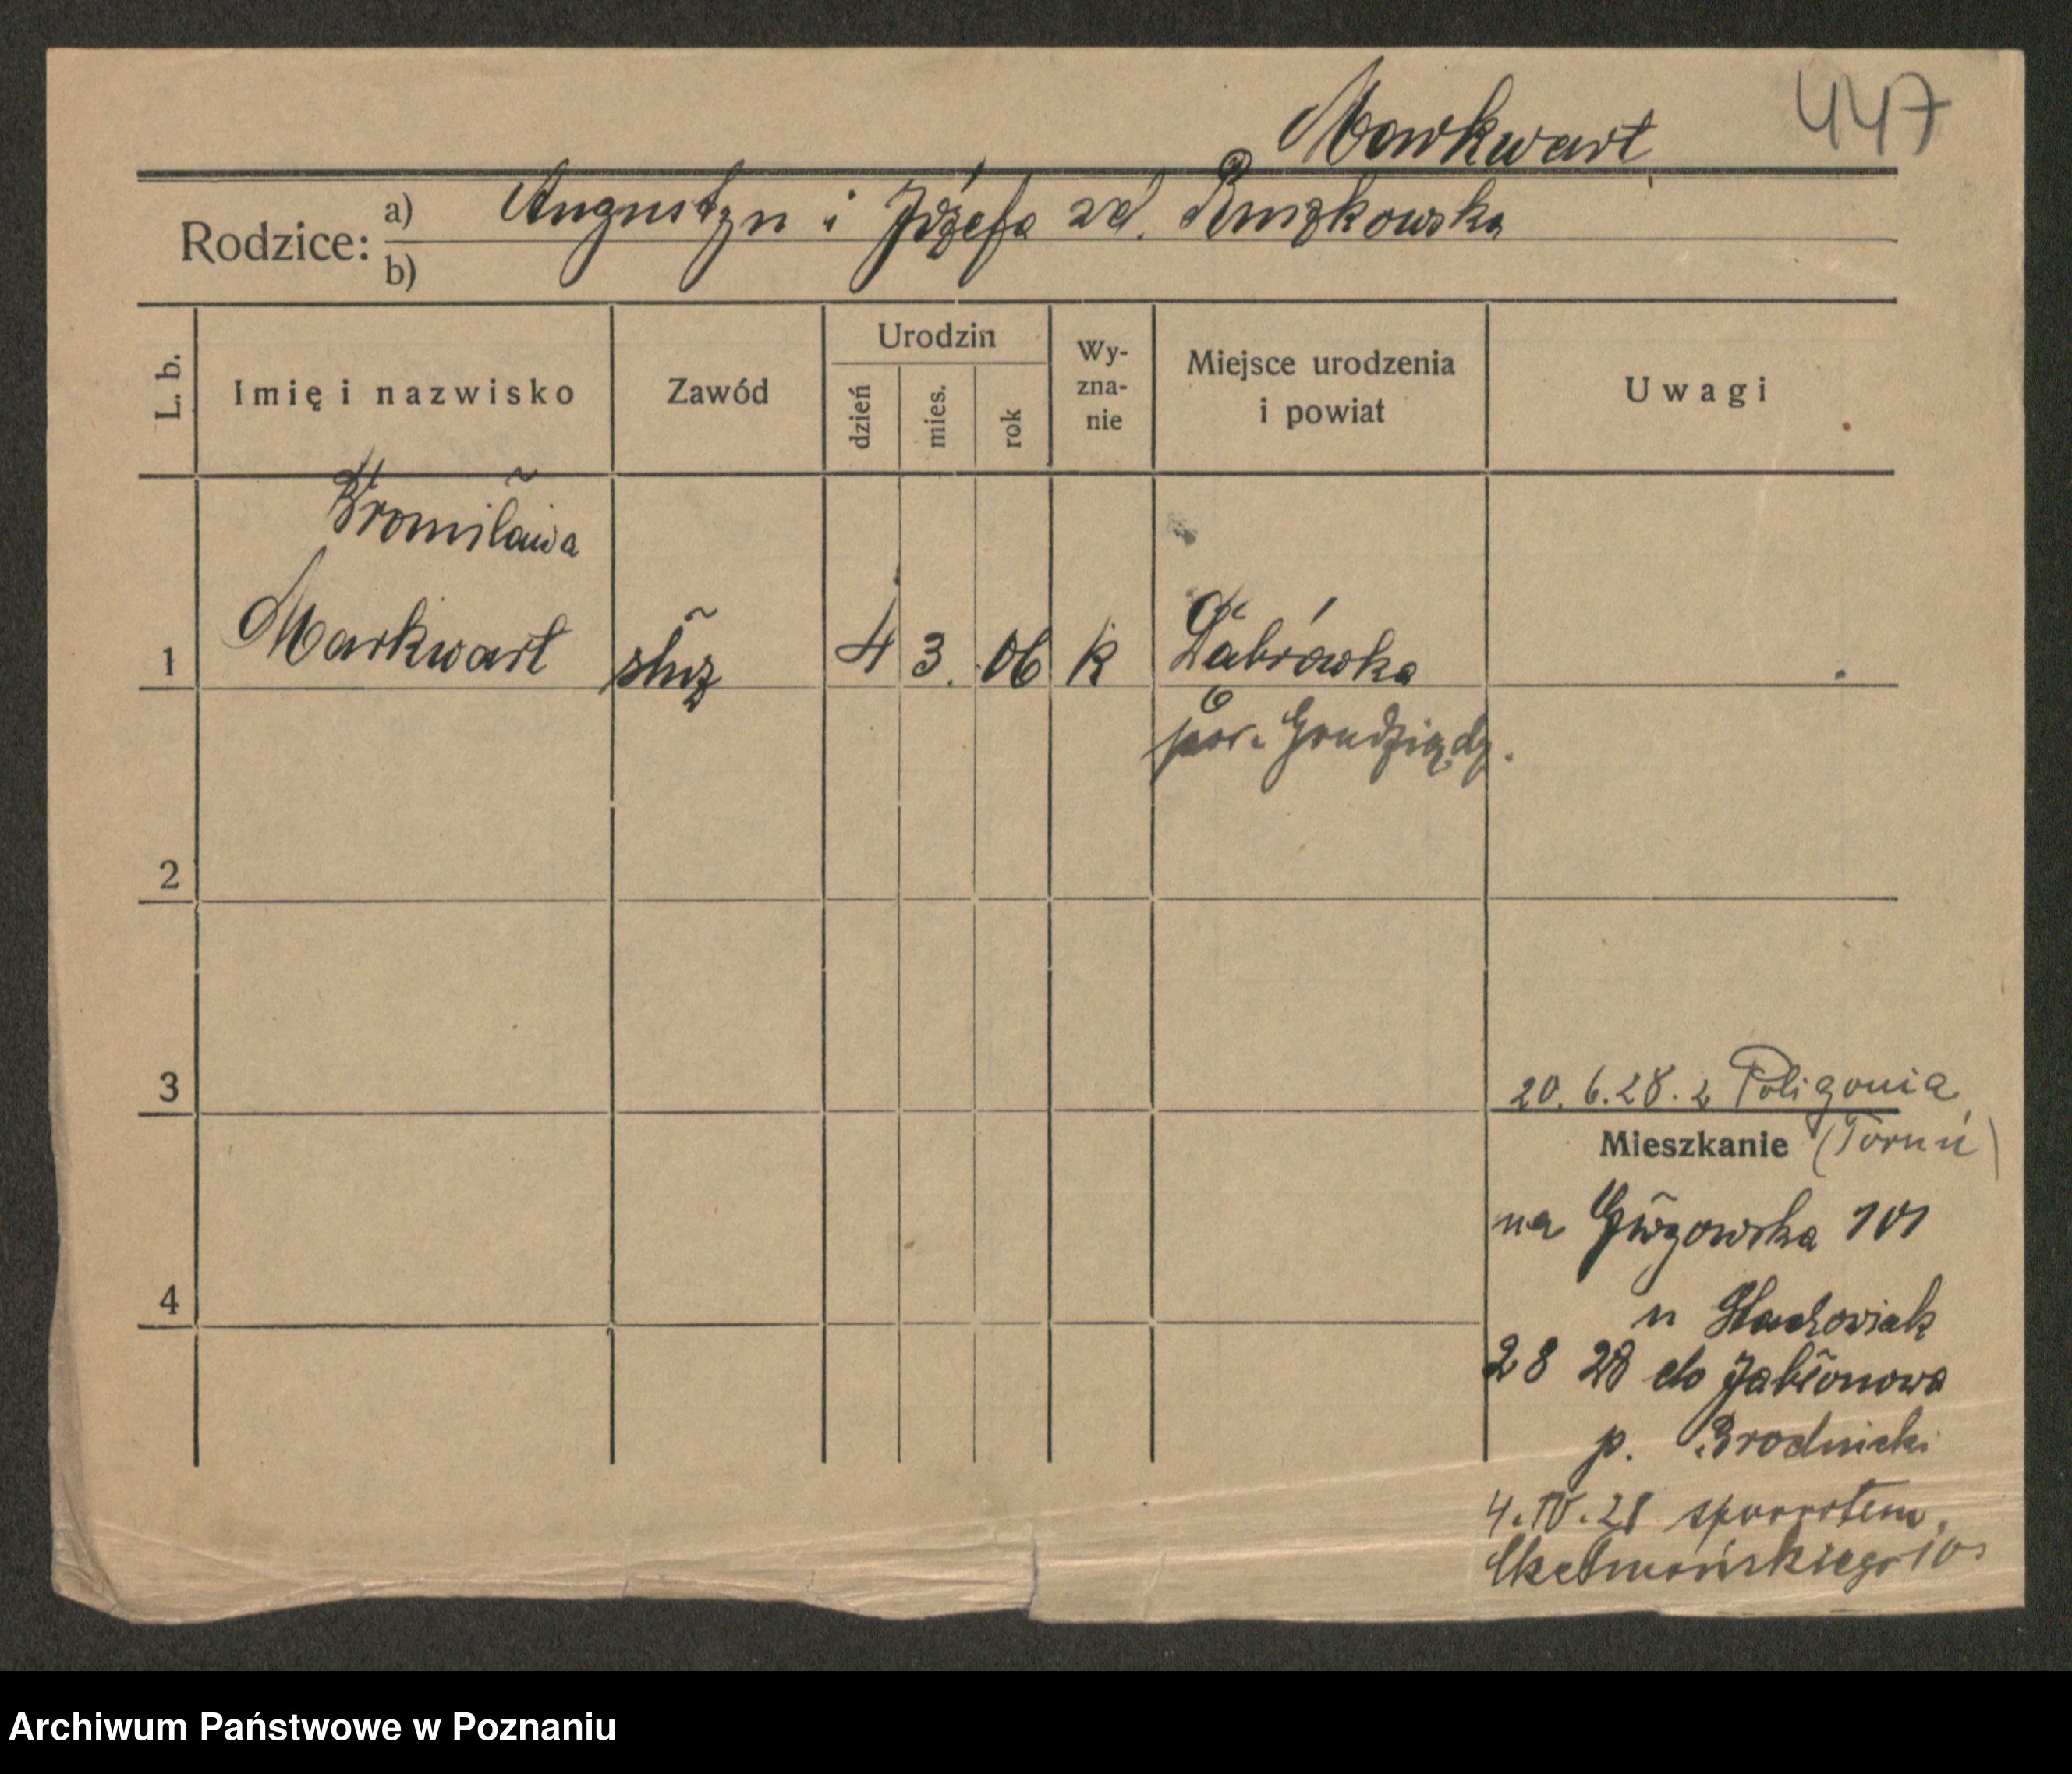 Markwart 447
Rodzice: a) Augustyn i Józefa zd. Ruszkowska
b)
L. b. Imię i nazwisko Zawód Urodzin dzień mies. rok Wy-zna-nie Miejsce urodzenia i powiat Uwagi
Bronisława
1 Markwart służ 4 3. 06 k Dąbrówka
pow. Grudziądz.
2
3 20. 6. 28. z Poligonia
Mieszkanie (Toruń)
na Głogowska 101
u Stachowiak
28 28 do Jabłonowa
p. Brodnicki
4. IV. 28 spowrotem,
Chełmońskiego 10
4
Archiwum Państwowe w Poznaniu